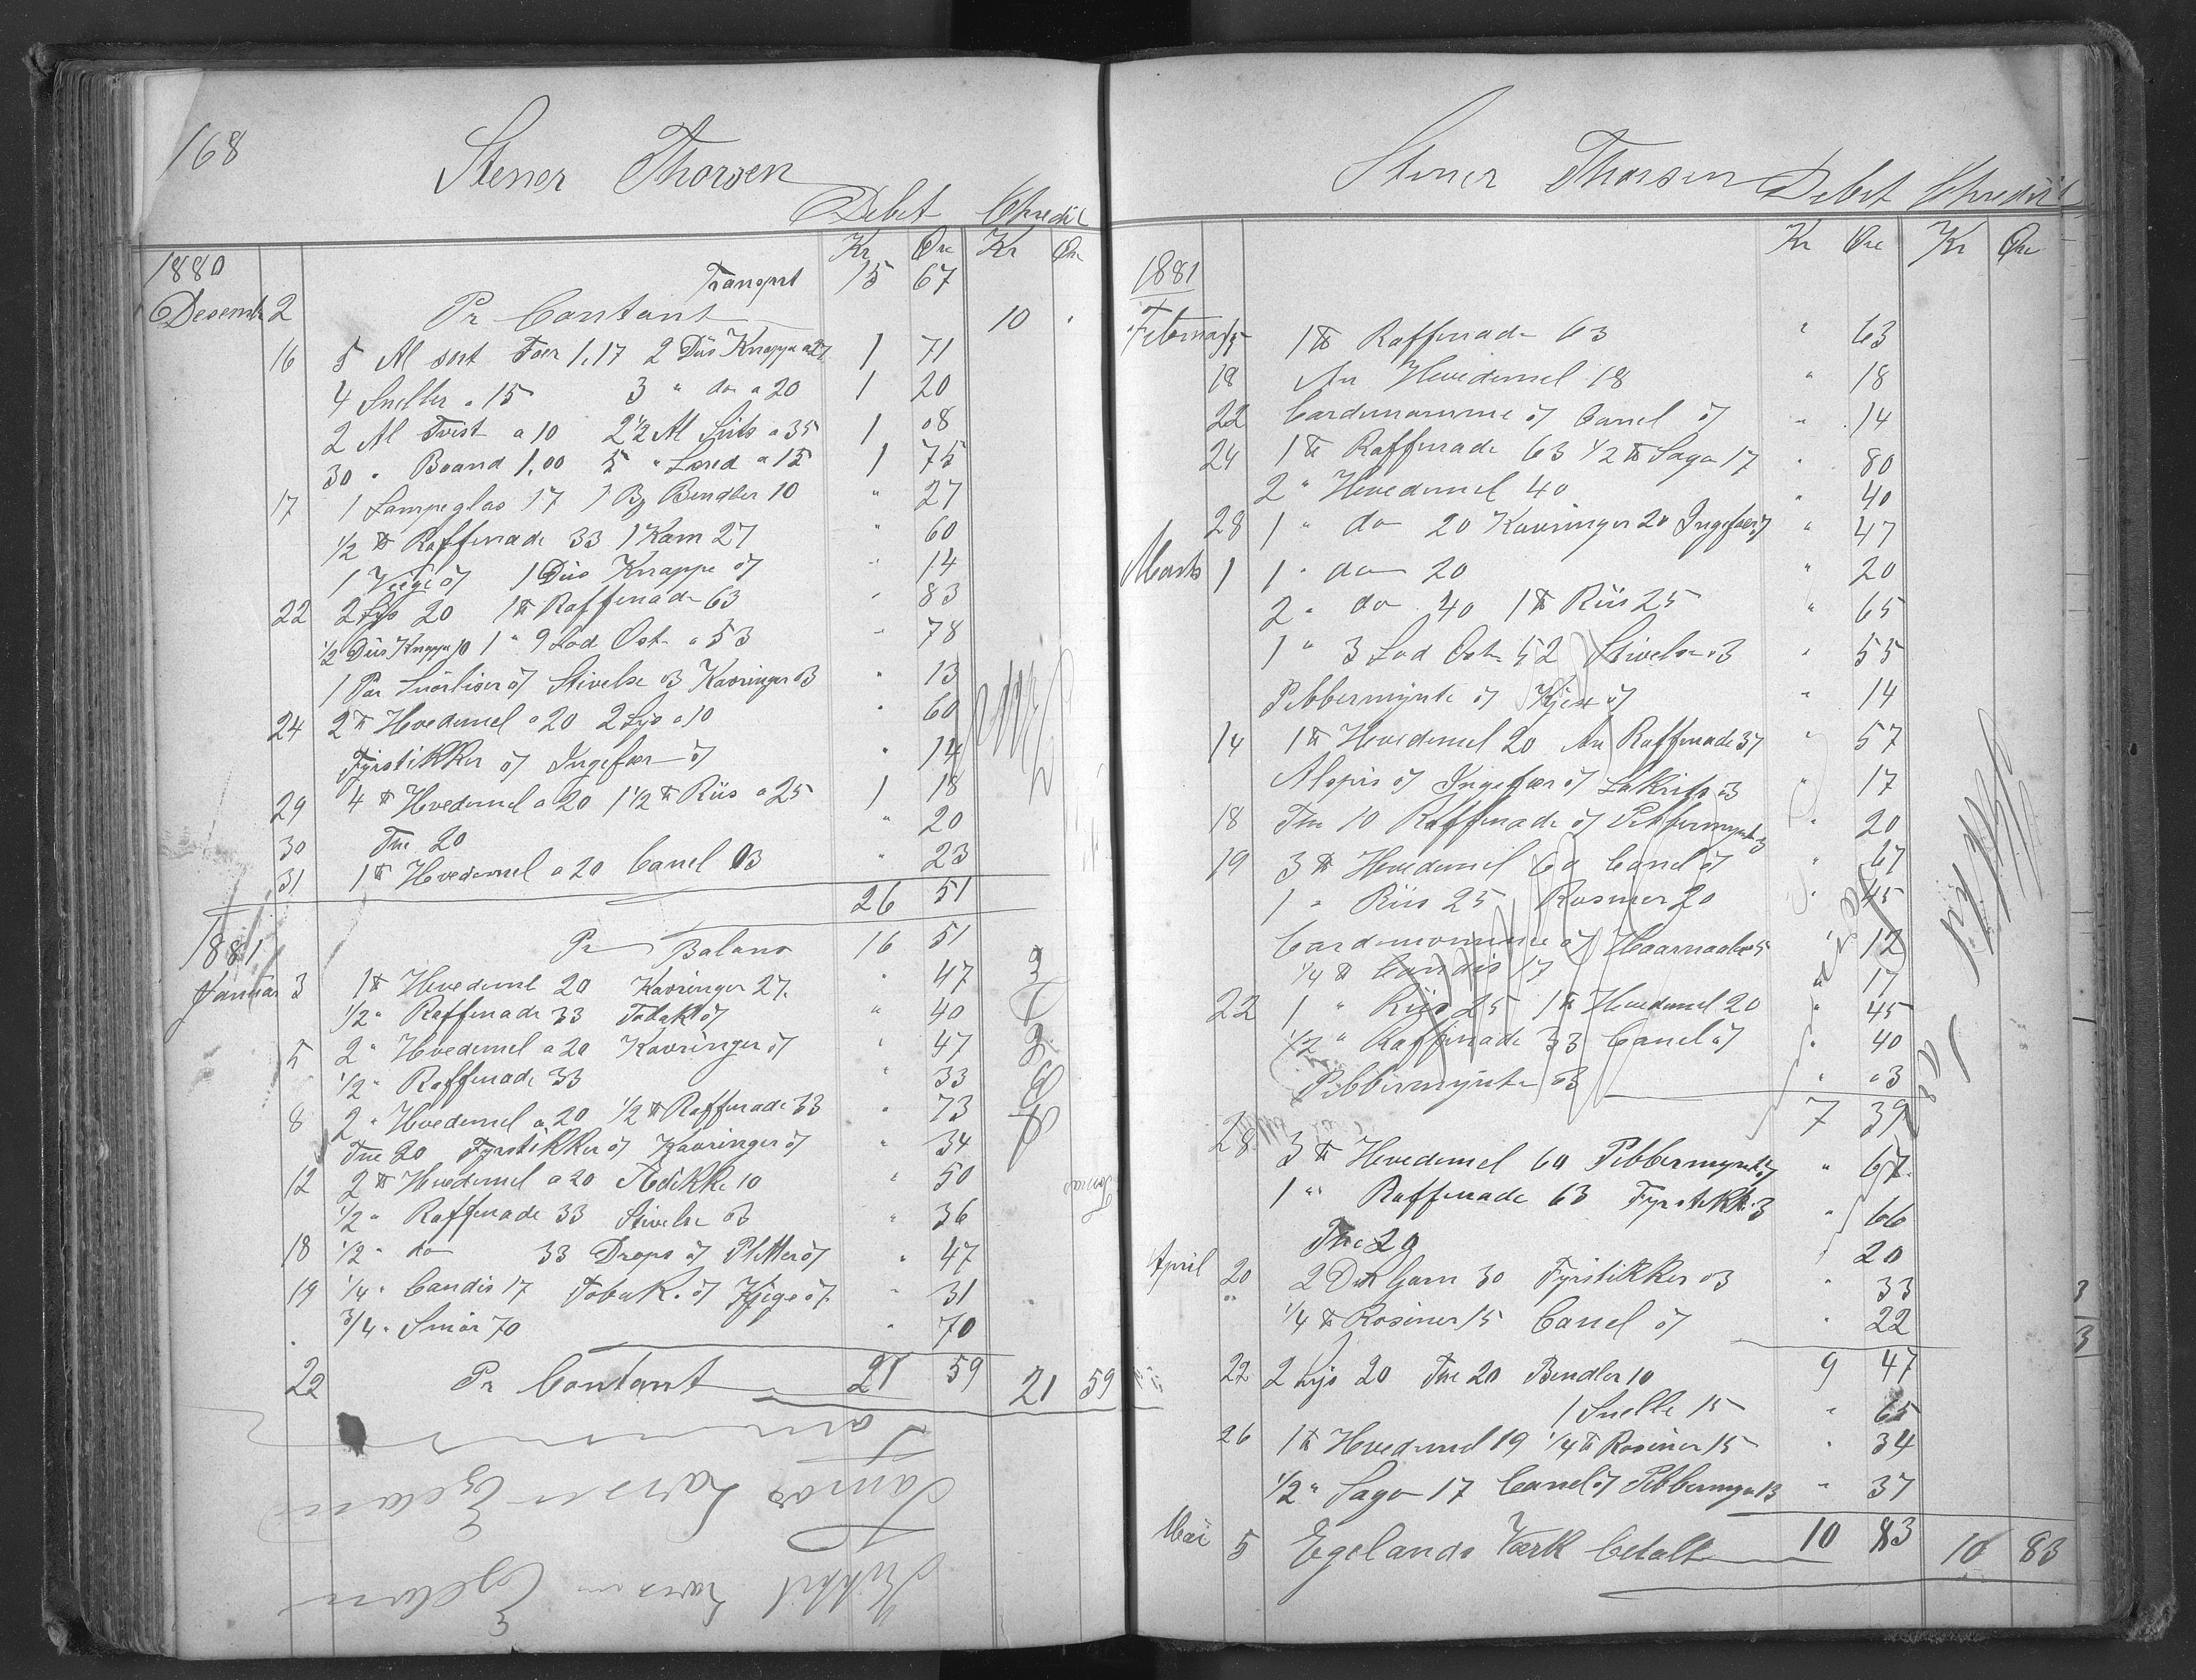 168
Stener Thorsen
Debet Chredit
Kr Øre Kr Øre
1880
Transport 15 67
Desembr 2 Pr Contant 10 .
16 5 Al sort Foer 1,17 2 Dus Knappe a 27 1 71
4 Sneller a 15 3 " do a 20 1 20
2 Al Tvist a 10 2 1/2 Al Sirts a 35 1 08
30 " Baand 1,00 5 " Lered a 15 1 75
17 1 Lampeglas 17 1 Bg Bendler 10 " 27
1/2 ℔ Raffenade 33 1 Kam 27 " 60
1 Vege 07 1 Dus Knappe 07 " 14
22 2 Lys 20 1 ℔ Raffenade 63 " 83
1/2 Dus Knappe 10 1 " 9 Lod Ost a 53 " 78
1 Par 07 Stivelse 03 Kavringer 03 " 13
24 2 ℔ Hvedemel a 20 2 Lys a 10 " 60
Fyrstikker 07 Ingefær 07 " 14
29 4 ℔ Hvedemel a 20 1 1/2 ℔ Riis a 25 1 18
30 The 20 " 20
31 1 ℔ Hvedemel a 20 Canel 03 " 23
26 51
1881 Pr Balans 16 51
Januar 3 1 ℔ Hvedemel 20 Kavringer 27. " 47
1/2 " Raffenade 33 Tobak 07 " 40
5 2 " Hvedemel a 20 Kavringer 07 " 47
1/2 " Raffenade 33 " 33
8 2 " Hvedemel a 20 1/2 ℔ Raffenade 33 " 73
The 20 Fyrstikker 07 Kavringer 07 " 34
12 2 ℔ Hvedemel a 20 10 " 50
1/2 " Raffenade 33 Stivelse 03 " 36
18 1/2 " do 33 Drops 07 07 " 47
19 1/4 " Candis 17 Tobak. 07 Kjegs 07 " 31
. 3/4 " Smør 70 " 70
22 Pr Contant 21 59 21 59
Tomas Larsen Egeland
Larsen Egeland
Stener Thorsen
Debet Chredit
Kr Øre Kr Øre
1881
Februar 15 1 ℔ Raffenade 63 " 63
18 An Hvedemel 18 " 18
22 Cardemomme 07 Canel 07 " 14
24 1 ℔ Raffenade 63 1/2 ℔ Sago 17 " 80
2 " Hvedemel 40 " 40
28 1 " do 20 Kavringer 20 Ingefær 07 " 47
Marts 1 1 " do 20 " 20
2 " do 40 1 ℔ Riis 25 " 65
1 " 3 Lod Ost 52 Stivelse 03 " 55
Pebbermynte 07 Kjex 07 " 14
14 1 ℔ Hvedemel 20 An Raffenade 37 " 57
07 Ingefær 07 Lakrits 03 " 17
18 The 10 Raffenade 07 Pebbermynte 3 " 20
19 3 ℔ Hvedemel 60 Canel 07 " 67
1 " Riis 25 Rosiner 20 " 45
Cardemomme 07 Haarnaale 5 " 12
1/4 ℔ Candis 17 " 17
22 1 " Riis 25 1 ℔ Hvedemel 20 " 45
1/2 " Raffenade 33 Canel 07 " 40
Pebbermynte 03 " 03
7 39
28 3 ℔ Hvedemel 60 Pebbermynte 07 " 67
1 " Raffenade 63 Fyrstikk. 3 " 66
The 20 " 20
April 20 2 Duk Garn 30 Fyrstikker 03 " 33
" 1/4 ℔ Rosiner 15 Canel 07 " 22
9 47
22 2 Lys 20 The 20 Bendler 10
1 Snelle 15 " 65
26 1 ℔ Hvedemel 19 1/4 ℔ Rosiner 15 " 34
1/2 " Sago 17 Canel 07 Pebbermyn 13 " 37
10 83
Mai 5 Egelands Værk betalt 10 83